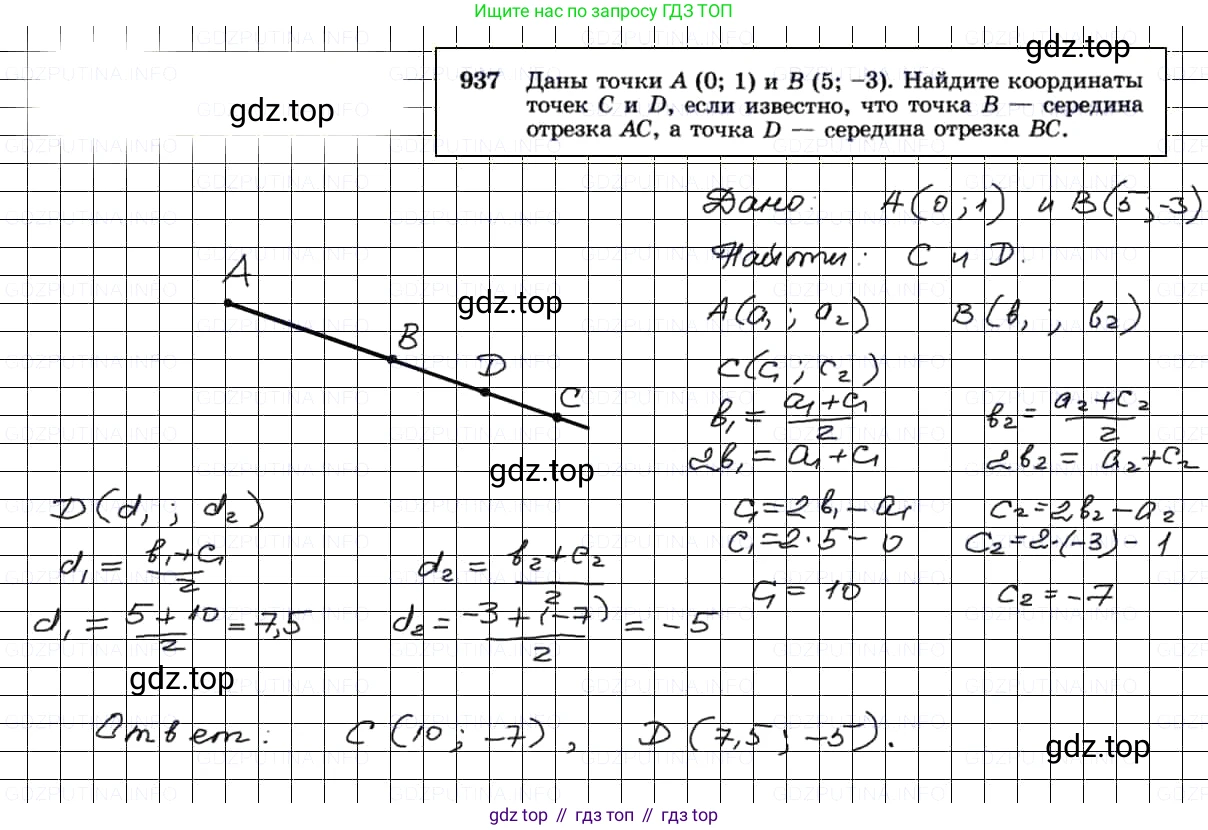 Ищите нас по запросу ГДЗ ТОП
gdz.top
937 Даны точки A (0; 1) и B (5; −3). Найдите координаты
точек C и D, если известно, что точка B — середина
отрезка AC, а точка D — середина отрезка BC.
gdz.top
Дано: A(0;1) и B(5;-3)
Найти: C и D.
A
gdz.top
A(a₁; a₂) B(b₁; b₂)
B
D
C
C(c₁; c₂)
b₁ = (a₁+c₁)/2 b₂ = (a₂+c₂)/2
gdz.top
2b₁ = a₁+c₁ 2b₂ = a₂+c₂
D(d₁; d₂)
c₁ = 2b₁ − a₁ c₂ = 2b₂ − a₂
d₁ = (b₁+c₁)/2 d₂ = (b₂+c₂)/2
c₁ = 2·5 − 0 c₂ = 2·(−3) − 1
c₁ = 10 c₂ = −7
d₁ = (5+10)/2 = 7,5 d₂ = (−3+(−7))/2 = −5
gdz.top
Ответ: C(10; −7), D(7,5; −5).
gdz.top
gdz top // гдз топ // гдз top
GDZPUTINA.INFO